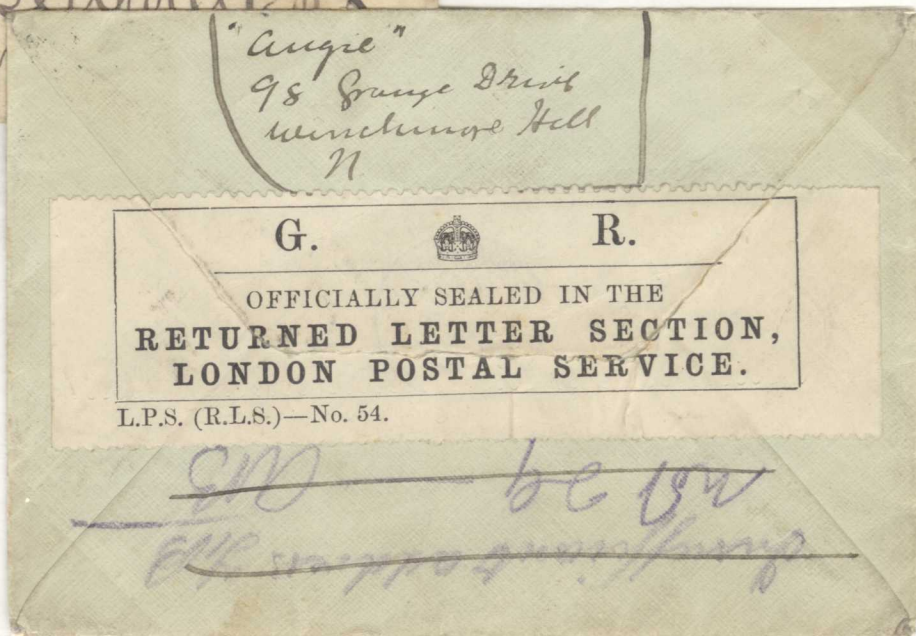 "Augie"
98 Grange Drive
Winchmore Hill
N
G. R.
OFFICIALLY SEALED IN THE
RETURNED LETTER SECTION,
LONDON POSTAL SERVICE.
L.P.S. (R.L.S.)—No. 54.
Insufficient address
Not 29